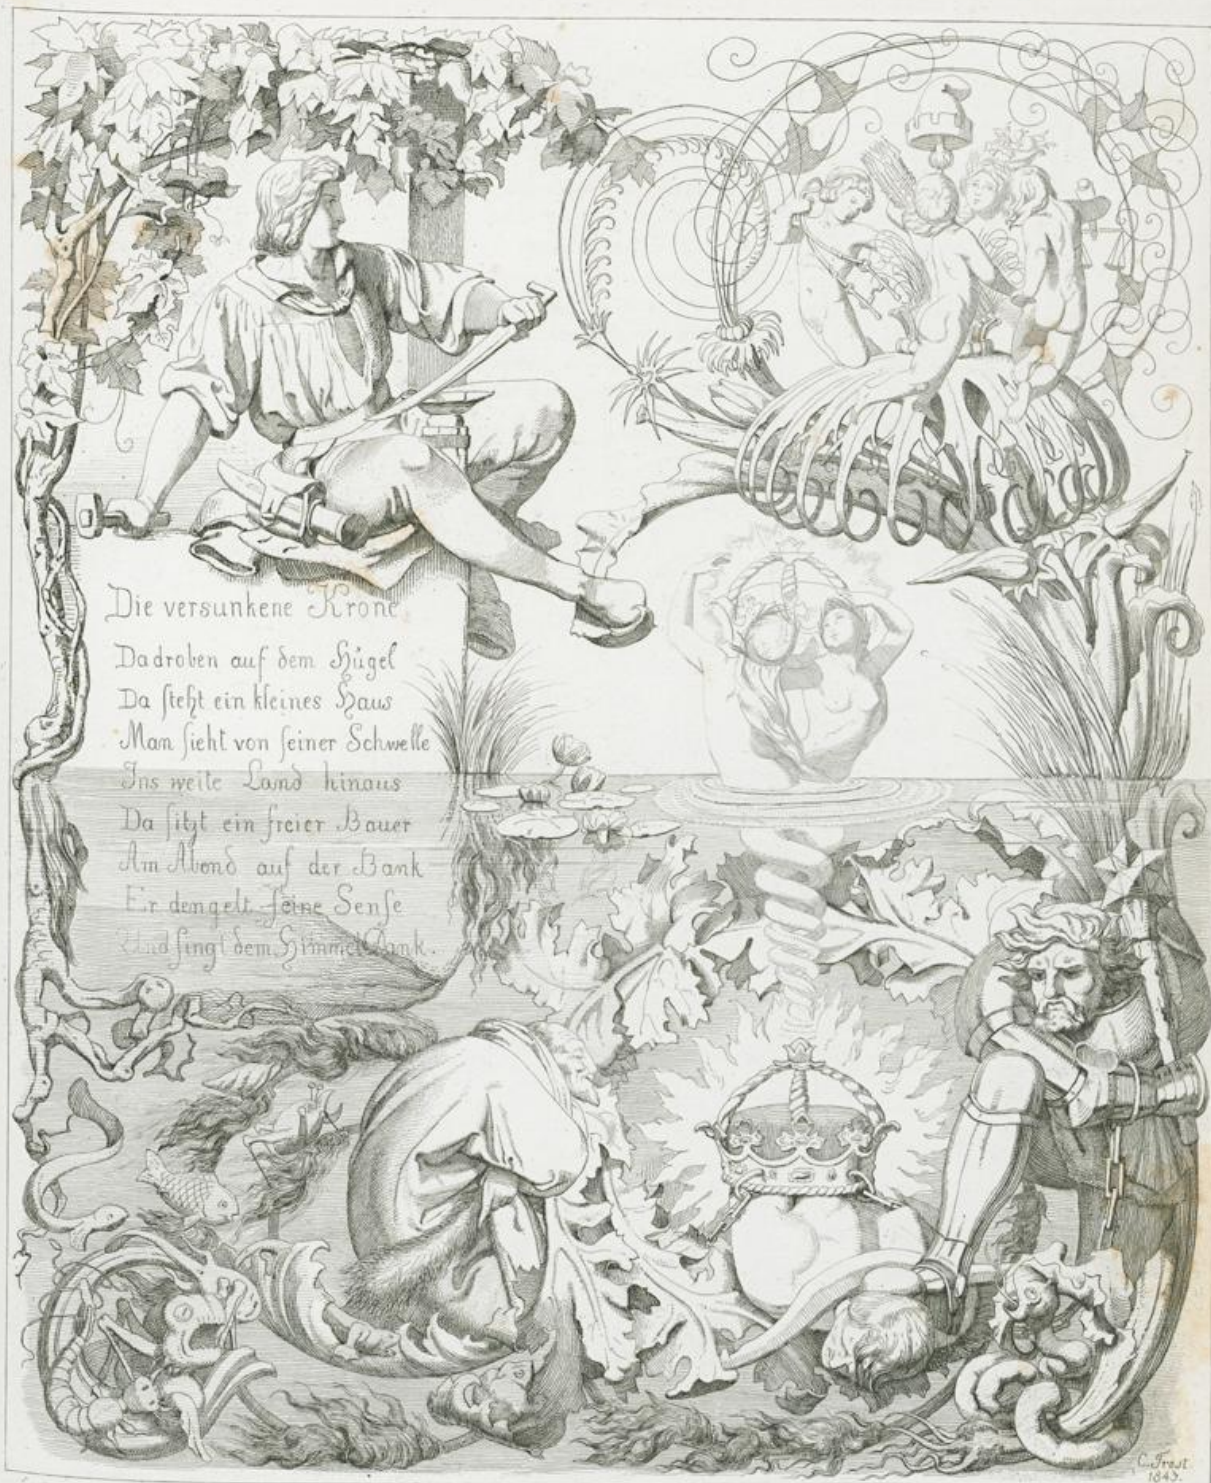 Die versunkene Krone
Dadroben auf dem Hügel
Da steht ein kleines Haus
Man sieht von seiner Schwelle
Ins weite Land hinaus
Da sitzt ein freier Bauer
Am Abend auf der Bank
Er dengelt seine Sense
Und singt dem Himmel Dank.
C. Trost.
1843